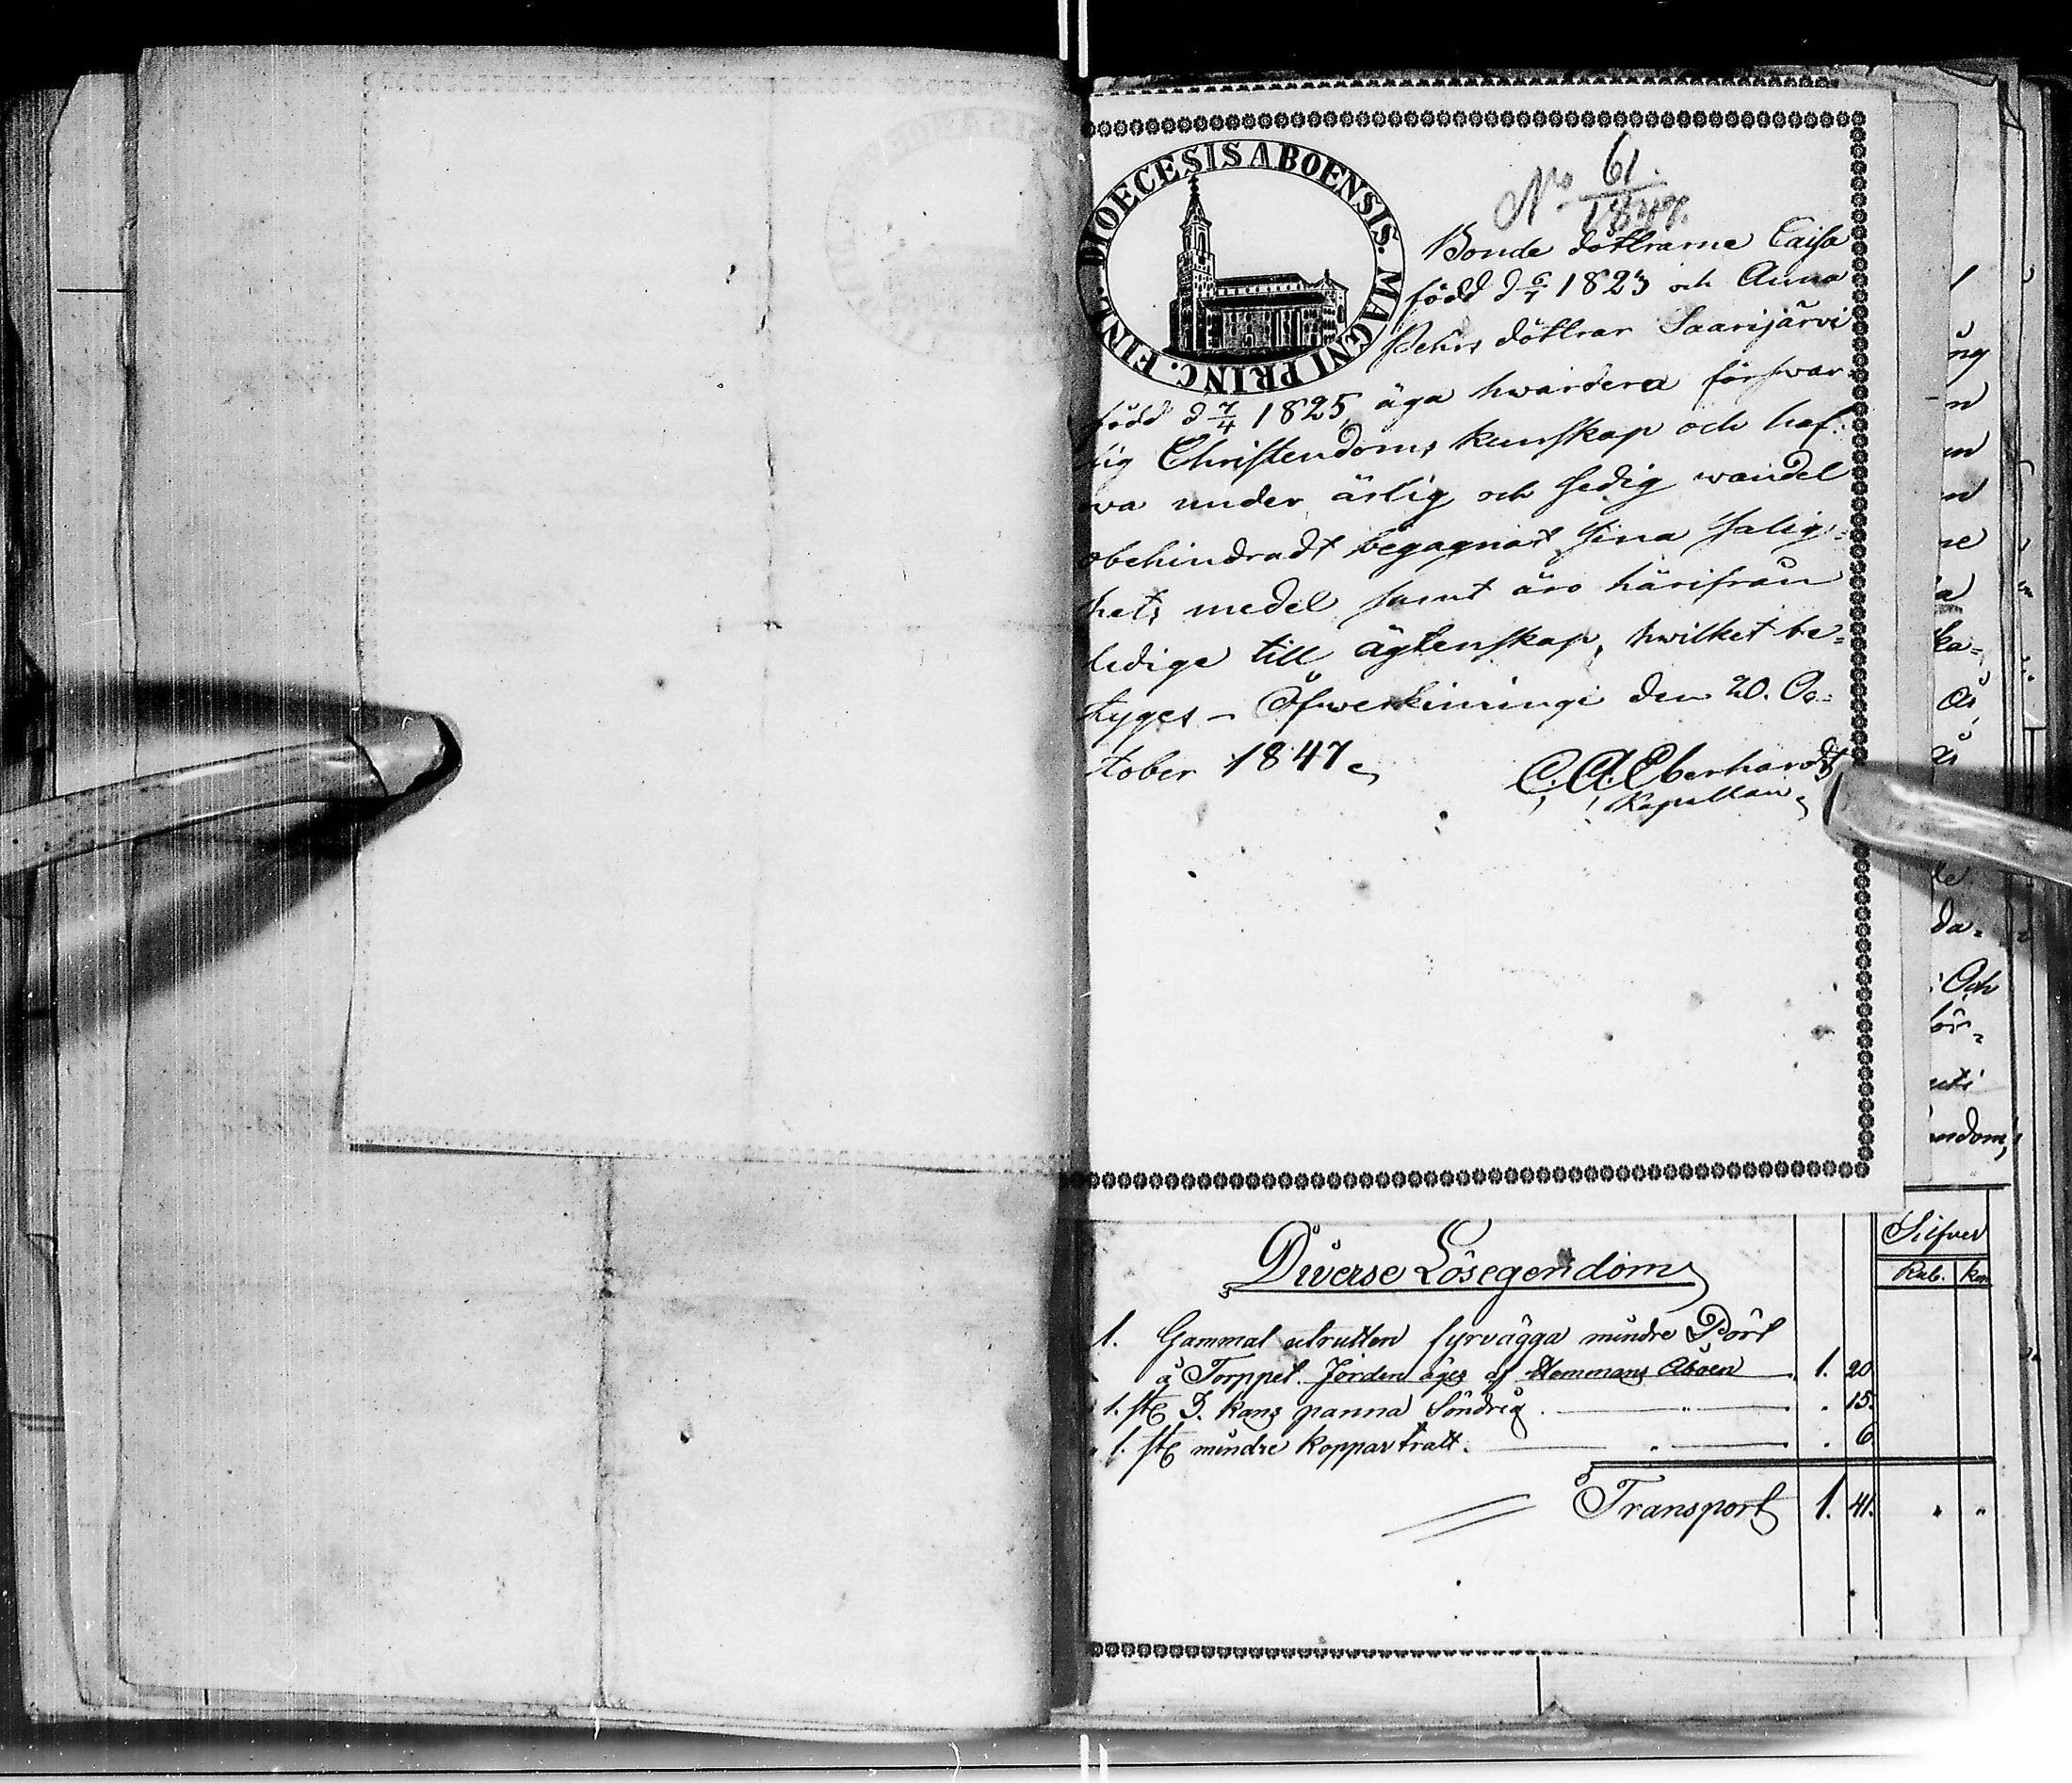 DIOECESIS ABOENSIS. MAGNI PRINC. FINL.
No 61. / 1847.
Bonde döttrarne Caisa
född d 6/7 1823 och Anna
Pehrs döttrar Saarijärvi
född d 7/4 1825, äga hwardera förswar=
lig Christendoms kunskap och haf=
va under ärlig och sedig wandel
obehindradt begagnat sina salig=
hets medel samt äro härifrån
ledige till ägtenskap, hwilket be=
tyges – Öfwerkiimingi den 20. Oc=
tober 1847.
C. A. Eberhardt
Kapellan
Silfver
Rub. kop
Diverse Lösegendom
1. Gammal utrutten fyrvägga mindre Pört
å Torppet. Jorden äges af Hemmans Åboen 1. 20
1. st 3. kans panna Söndrig . " . 15.
1. st mindre koppar tratt. " . 6
Transport 1. 41. " "
ng
n
ne
ka=
da=
Och
ndom,